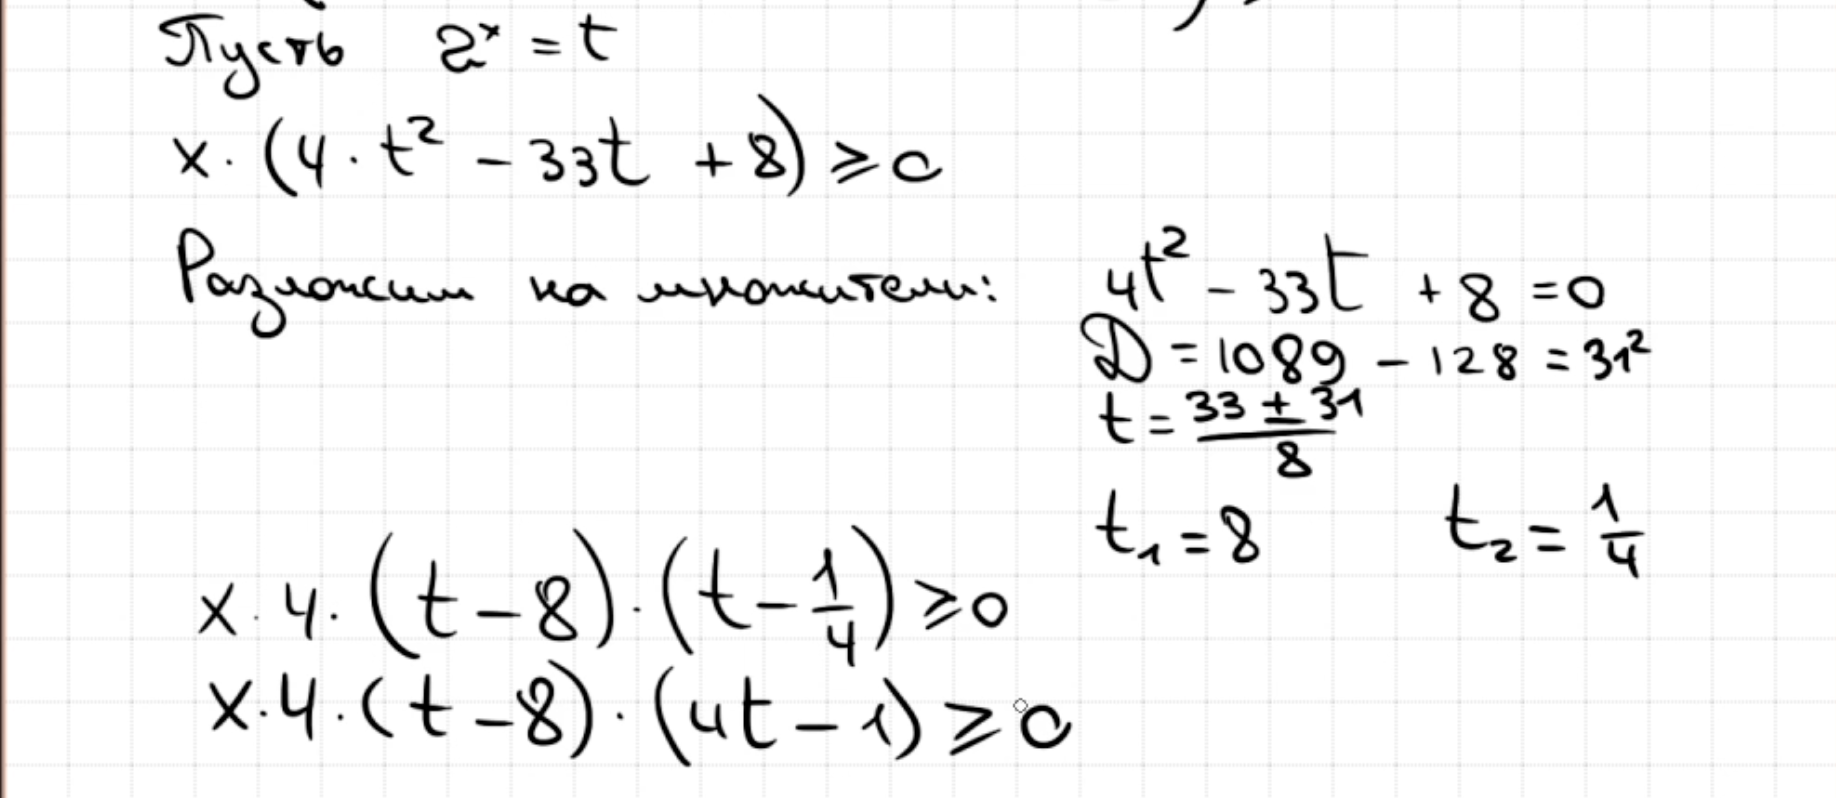 Пусть 2ˣ = t
x · (4 · t² − 33t + 8) ⩾ 0
Разложим на множители:
4t² − 33t + 8 = 0
D = 1089 − 128 = 31²
t = (33 ± 31)/8
t₁ = 8 t₂ = 1/4
x · 4 · (t − 8) · (t − 1/4) ⩾ 0
x · 4 · (t − 8) · (4t − 1) ⩾ 0